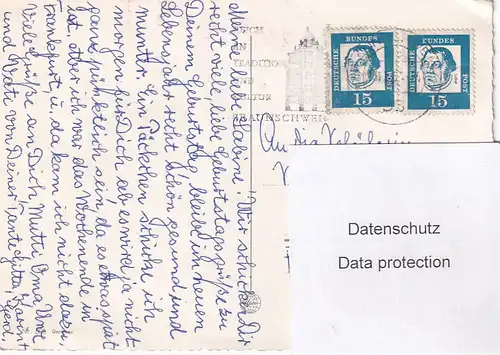 Meine liebe Sabine! Wir schicken Dir
recht viele liebe Geburtstagsgrüße zu
Deinem Geburtstag, bleib im neuen
Lebensjahr recht schön gesund und
munter. Ein Päckchen schicke ich
morgen für Dich ab es wird ja nicht
ganz pünktlich sein, da es etwas spät
ist, aber ich war das Wochenende in
Frankfurt, u. da kam ich nicht dazu.
Viele Grüße an Dich, Mutti, Oma
und Vati von Deiner Tante Gitta,
REICH
IN
TRADITION
KULTUR
BRAUNSCHWEIG
DEUTSCHE BUNDES POST
15
DEUTSCHE BUNDES POST
15
An die Schülerin
Datenschutz
Data protection